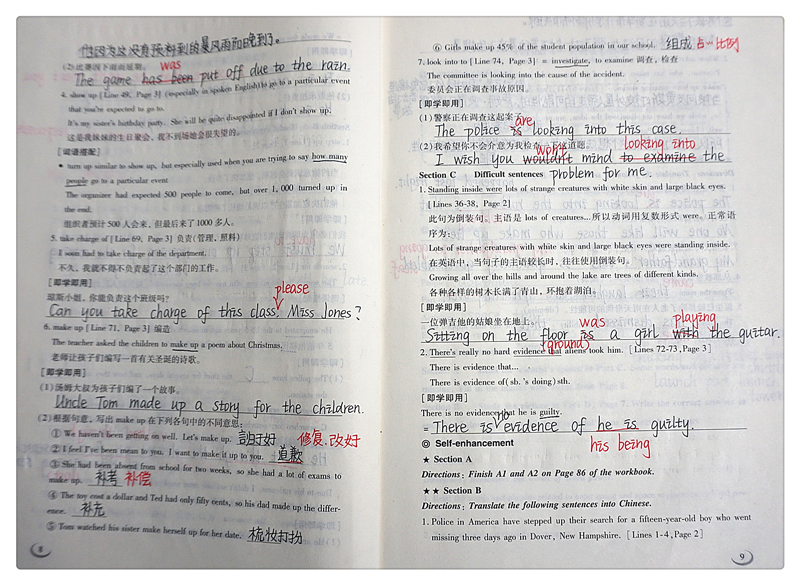 他因为这没有预料到的暴风雨而晚到了。
(2)比赛因下雨而延期。 was
The game has been put off due to the rain.
4. show up [Line 49, Page 3] (especially in spoken English) to go to a particular event
that you're expected to go to.
It's my sister's birthday party. She will be quite disappointed if I don't show up.
这是我妹妹的生日聚会，我不到场她会很失望的。
[词语搭配]
● turn up similar to show up, but especially used when you are trying to say how many
people go to a particular event
The organizer had expected 500 people to come, but over 1,000 turned up in
the end.
组织者预计500人会来，但最后来了1000多人。
5. take charge of [Line 69, Page 3] 负责(管理、照料)
I soon had to take charge of the department.
不久，我就不得不负责起了这个部门的工作。
[即学即用]
琼斯小姐，你能负责这个班级吗？ please
Can you take charge of this class, Miss Jones?
6. make up [Line 71, Page 3] 编造
The teacher asked the children to make up a poem about Christmas.
老师让孩子们编写一首有关圣诞的诗歌。
[即学即用]
(1)汤姆大叔为孩子们编了一个故事。
Uncle Tom made up a story for the children.
(2)根据句意，写出make up在下列各句中的不同意思：
① We haven't been getting on well. Let's make up. 和好 修复、改好
② I feel I've been mean to you. I want to make it up to you. 道歉
③ She had been absent from school for two weeks, so she had a lot of exams to
make up. 补考 补偿
④ The toy cost a dollar and Ted had only fifty cents, so his dad made up the differ-
ence. 补充
⑤ Tom watched his sister make herself up for her date. 梳妆打扮
8
⑥ Girls make up 45% of the student population in our school. 组成 占…比例
7. look into to [Line 74, Page 3] = investigate, to examine 调查，检查
The committee is looking into the cause of the accident.
委员会正在调查事故原因。
[即学即用]
(1)警察正在调查这起案子。 are
The police is looking into this case.
(2)我希望你不会介意为我检查一下这道题。 won't looking into
I wish you wouldn't mind to examine the
problem for me.
Section C Difficult sentences
1. Standing inside were lots of strange creatures with white skin and large black eyes.
[Lines 36-38, Page 2]
此句为倒装句。主语是 lots of creatures…所以动词用复数形式 were。正常语
序为：
Lots of strange creatures with white skin and large black eyes were standing inside.
在英语中，当句子的主语较长时，往往使用倒装句。
Growing all over the hills and around the lake are trees of different kinds.
各种各样的树木长满了青山，环抱着湖泊。
[即学即用]
一位弹吉他的姑娘坐在地上。 was playing
Sitting on the floor is a girl with the guitar.
(ground)
2. There's really no hard evidence that aliens took him. [Lines 72-73, Page 3]
There is evidence that…
There is evidence of(sb.'s doing)sth.
[即学即用]
There is no evidence that he is guilty.
no
= There is evidence of he is guilty.
his being
◎ Self-enhancement
★ Section A
Directions: Finish A1 and A2 on Page 86 of the workbook.
★★ Section B
Directions: Translate the following sentences into Chinese.
1. Police in America have stepped up their search for a fifteen-year-old boy who went
missing three days ago in Dover, New Hampshire. [Lines 1-4, Page 2]
9